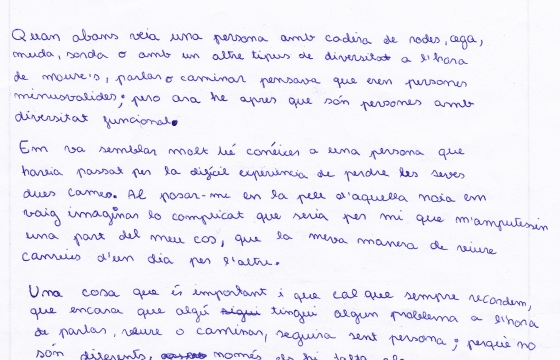 Quan abans veia una persona amb cadira de rodes, cega,
muda, sorda o amb un altre tipus de diversitat a l'hora
de moure's, parlar o caminar pensava que eren persones
minusvalides; pero ara he apres que són persones amb
diversitat funcional.
Em va semblar molt bé conéixer a una persona que
havia passat per la difícil experiencia de perdre les seves
dues cames. Al posar-me en la pell d'aquella noia em
vaig imaginar lo complicat que seria per mi que m'amputessin
una part del meu cos, que la meva manera de viure
canvies d'un dia per l'altre.
Una cosa que és important i que cal que sempre recordem,
que encara que algú tingui algun problema a l'hora
de parlar, veure o caminar, seguira sent persona; perquè no
són diferents, només els hi falta